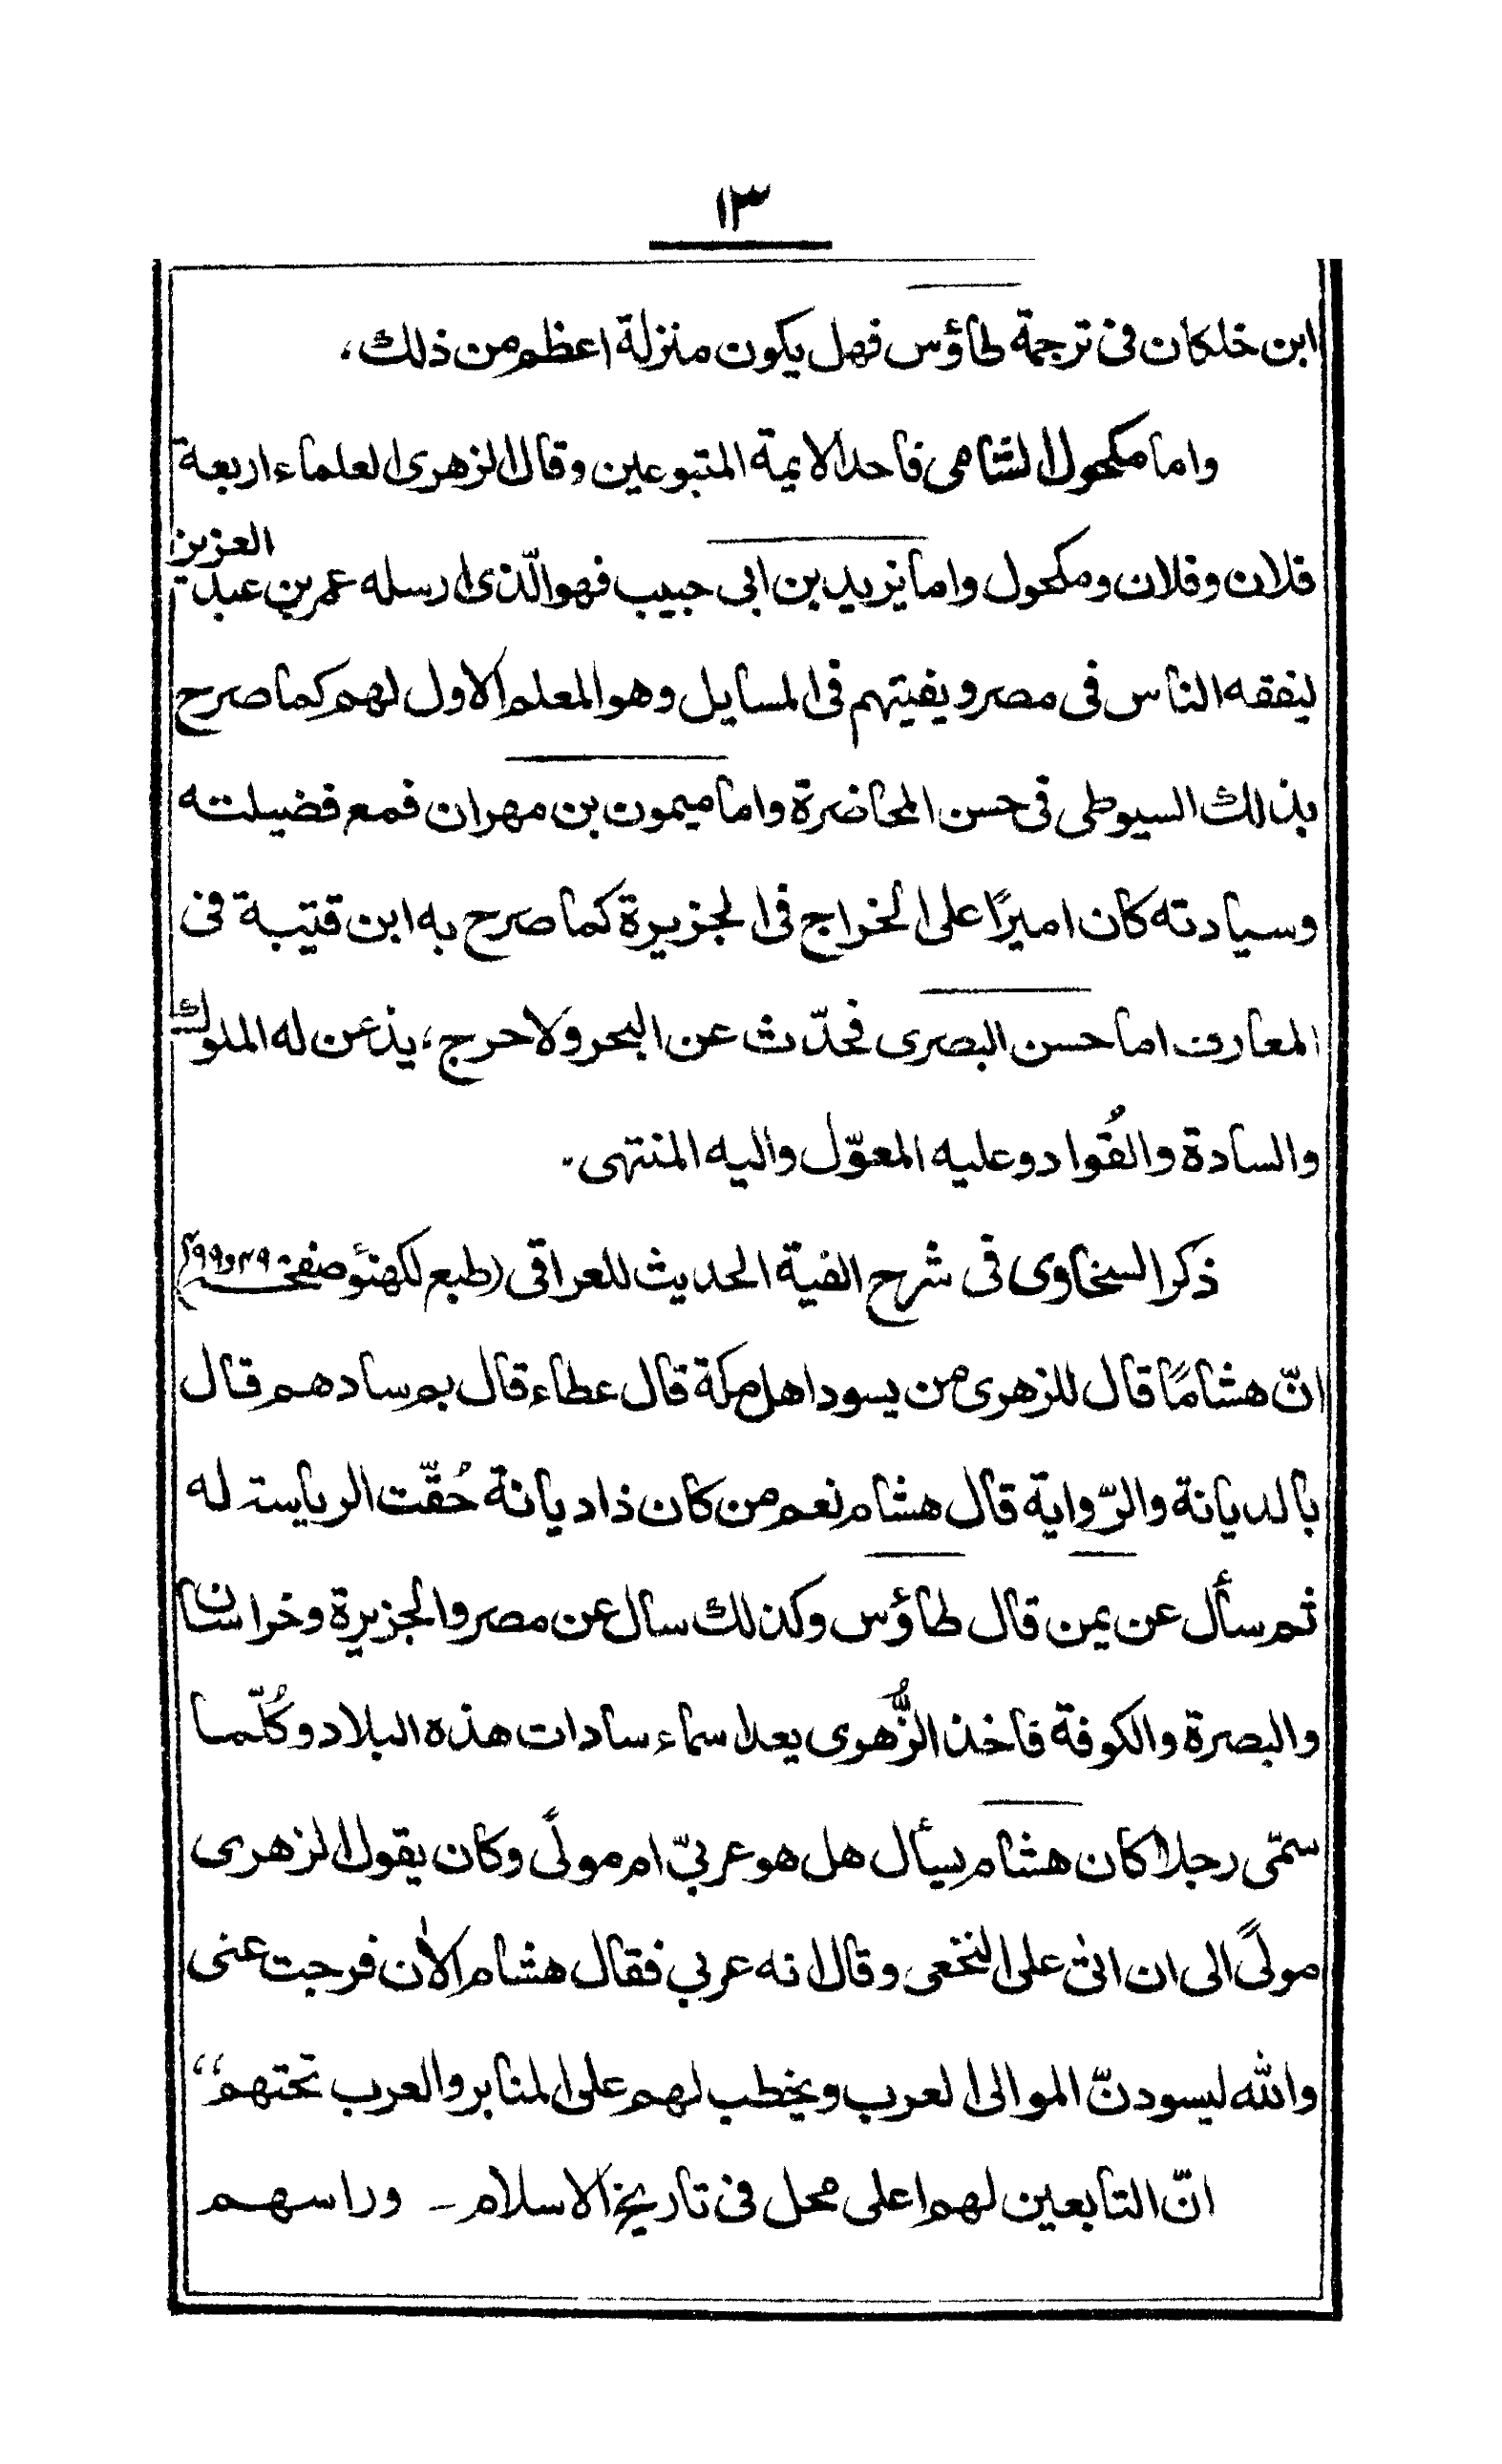 ١٣
ابن خلكان فى ترجمة طاؤس فهل يكون منزلة اعظم من ذلك،
واما مكحول الشامى فاحد الايمة المتبوعين وقال الزهرى العلماء اربعة
فلان وفلان ومكحول واما يزيد بن ابى حبيب فهو الّذى ارسله عمر بن عبد العزيز
ليفقه الناس فى مصر ويفيتهم فى المسايل وهو المعلم الاول لهم كما صرح
بذلك السيوطى فى حسن المحاضرة واما ميمون بن مهران فمع فضيلته
وسيادته كان اميرًا على الخراج فى الجزيرة كما صرح به ابن قتيبة فى
المعارف اما حسن البصرى فحدّث عن البحر ولا حرج، يذعن له الملوك
والسادة والقُواد وعليه المعوّل واليه المنتهى۔
ذكر السخاوى فى شرح الفية الحديث للعراقى (طبع لكهنئو صفحه
انّ هشامًا قال للزهرى من يسود اهل مكة قال عطاء قال بم سادهم قال
بالديانة والرّواية قال هشام نعم من كان ذا ديانة حُقّت الرياسة له
ثم سأل عن يمن قال طاؤس وكذلك سال عن مصر والجزيرة وخراسان
والبصرة والكوفة فاخذ الزُّهرى يعد اسماء سادات هذه البلاد وكُلّما
سمّى رجلا كان هشام يسأل هل هو عربىّ ام مولًى وكان يقول الزهرى
مولًى الى ان اتى على النخعى وقال انه عربي فقال هشام الاٰن فرجت عنى
والله ليسودنّ الموالى العرب ويخطب لهم على المنابر والعرب تحتهم“
انّ التابعين لهم اعلى محل فى تاريخ الاسلام ۔ وراسهم